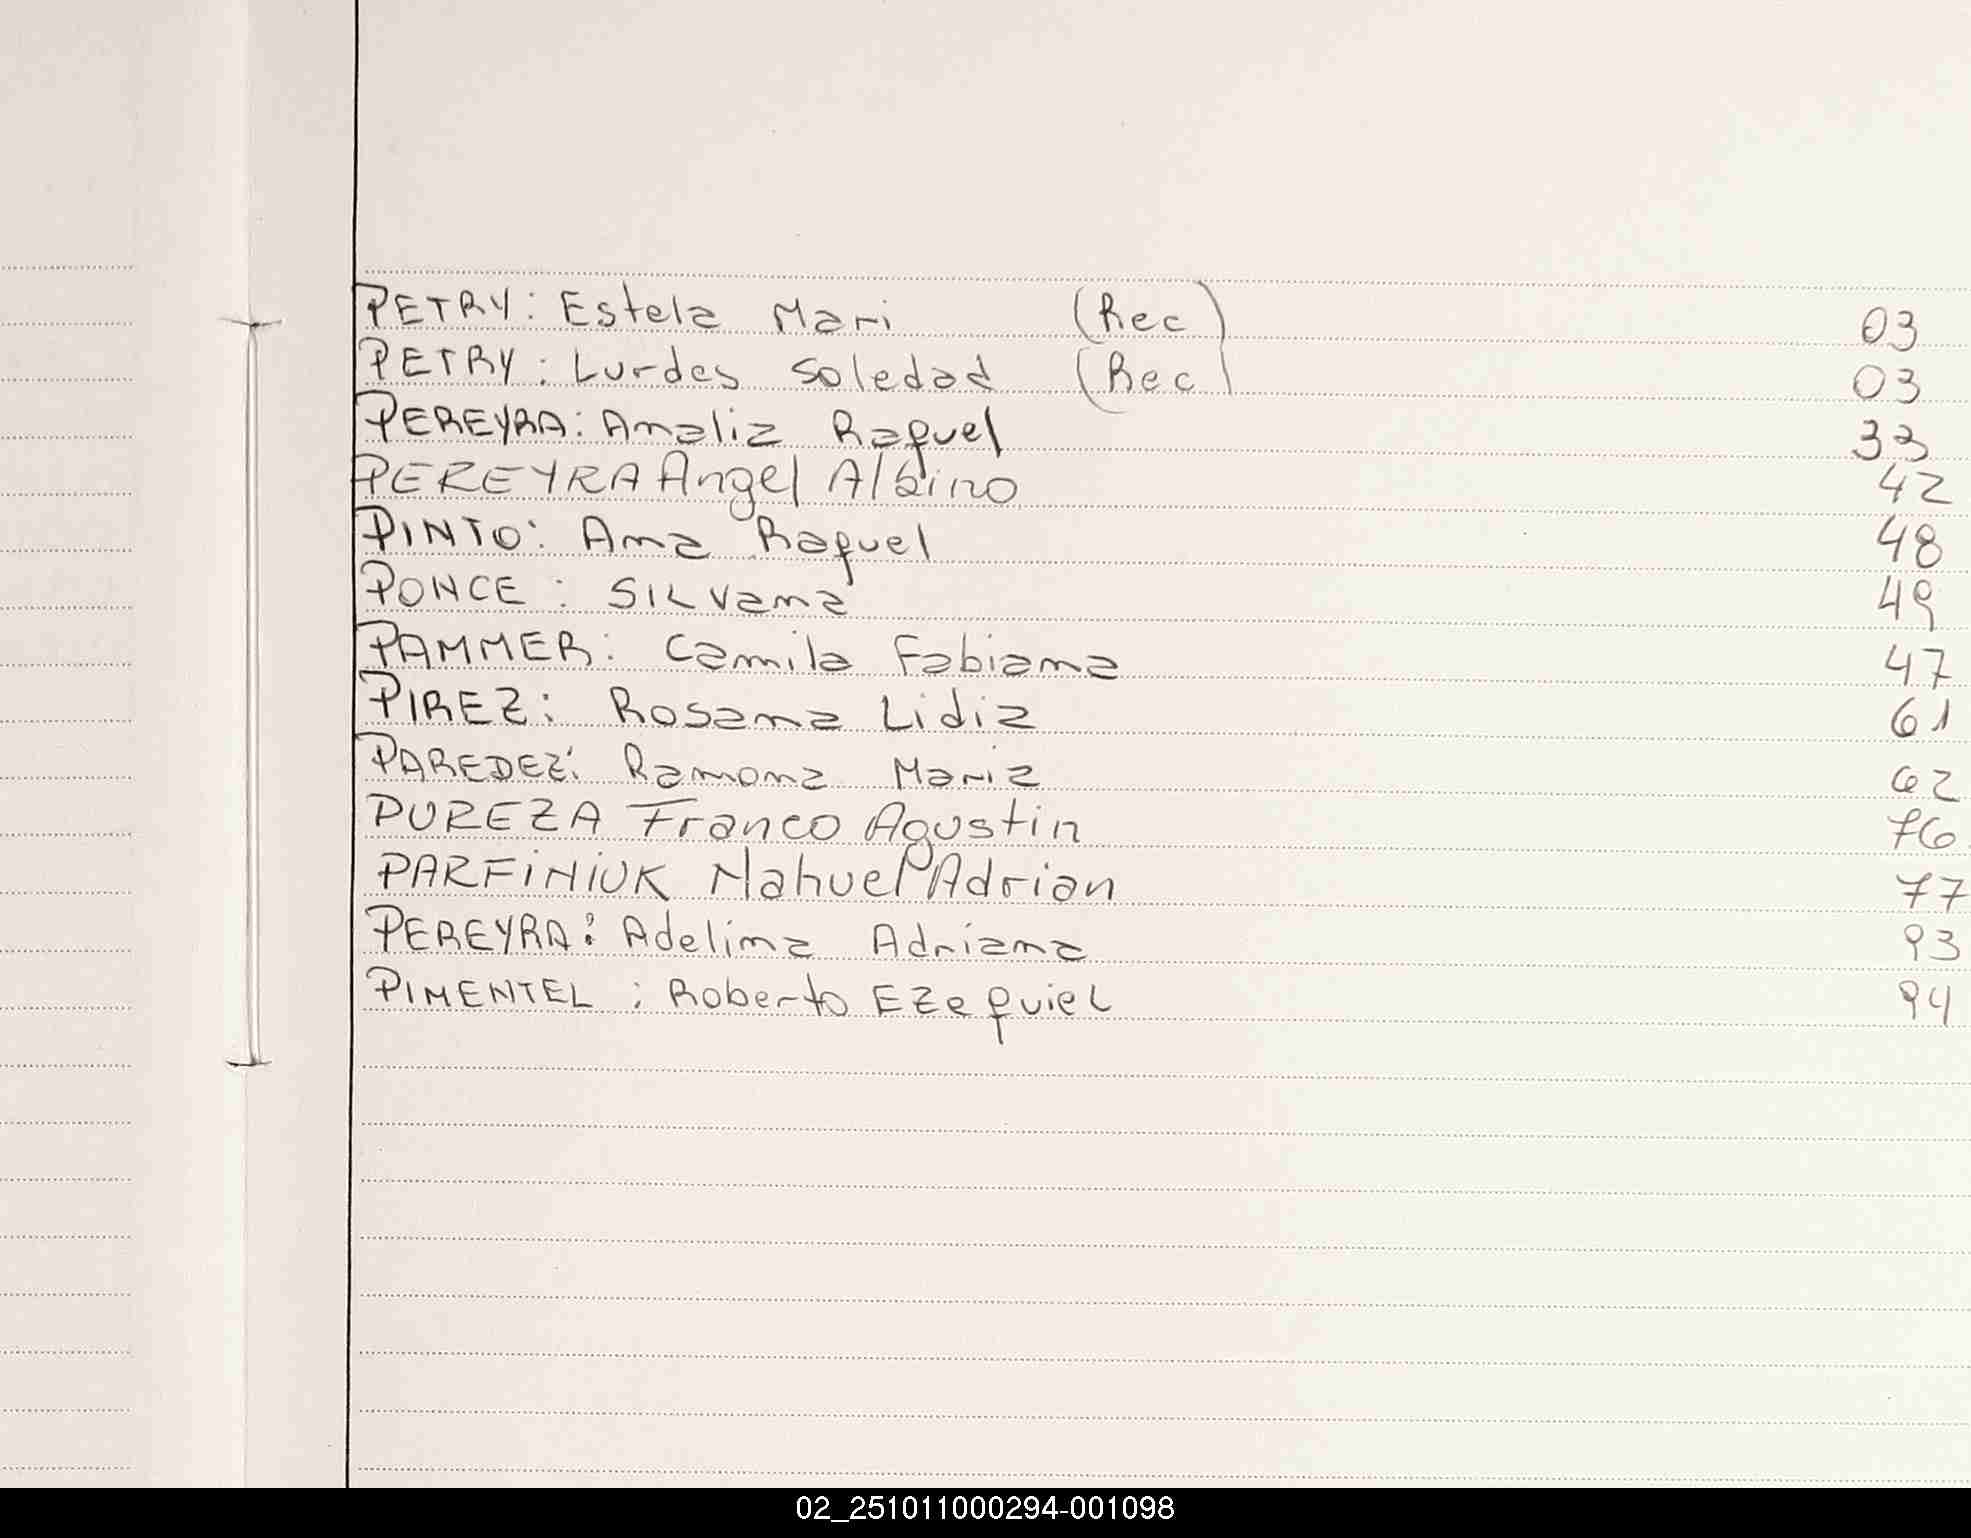 PETRY: Estela Mari (Rec) 03
PETRY: Lurdes Soledad (Rec) 03
PEREYRA: Analia Raquel 33
PEREYRA Angel Albino 42
PINTO: Ana Raquel 48
PONCE: SILVana 49
PAMMER: Camila Fabiana 47
PIREZ: Rosana Lidia 61
PAREDEZ: Ramona Maria 62
PUREZA Franco Agustin 76
PARFINIUK Nahuel Adrian 77
PEREYRA: Adelina Adriana 93
PIMENTEL: Roberto EZequiel 94
02_251011000294-001098